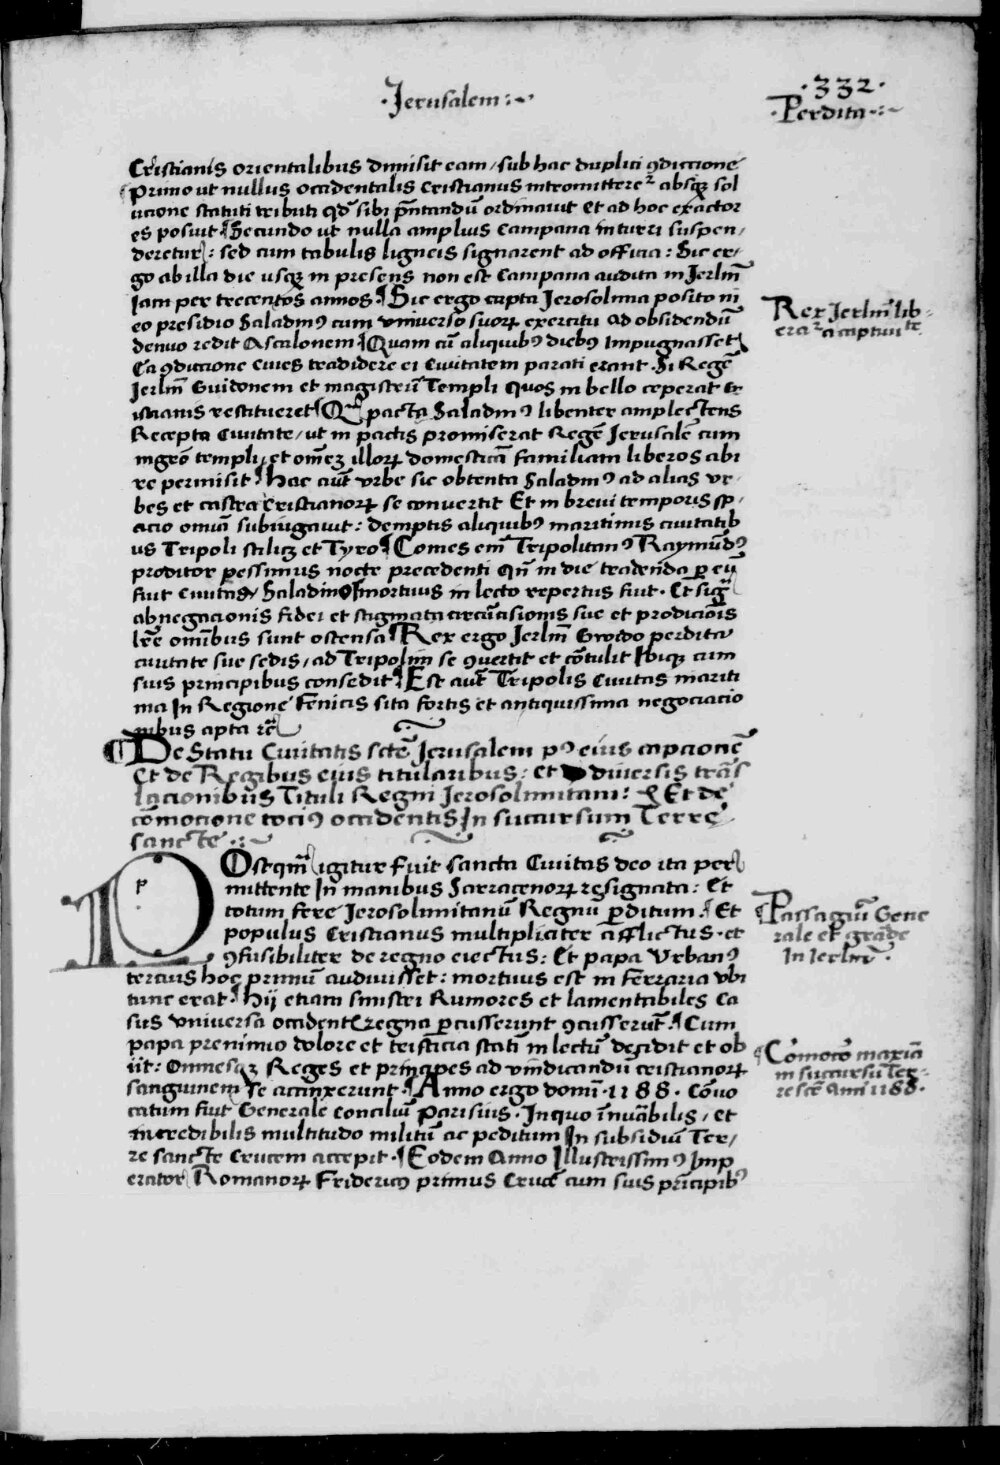 ·Jerusalem:~
·332·
·Perdita·:~
Cristianis orientalibus dimisit eam / sub hac duplici ꝯdiccione
¶Primo ut nullus occidentalis Cristianus intromitteret᷑ absqꝫ sol
ucione statuti tributi qd̄ sibi p̄ntandū ordinauit Et ad hoc exactor
es posuit ¶Secundo ut nulla amplius Campana in turri suspen/
deretur: sed cum tabulis ligneis signarent ad officia: Sic er/
go ab illa die usqꝫ in presens non est Campana audita in Jerlm̄
Iam per trecentos annos ¶Sic ergo capta Jerosolima posito in
eo presidio Saladinꝰ cum vniuerso suorꝝ exercitu ad obsidendū
denuo redit Ascalonem ¶Quam cū aliquibꝰ diebꝰ Impugnasset
Ea ꝯdiccione Ciues tradidere ei Ciuitatem parati erant · Si Regē
Jerlm̄ Guidonem et magistrū Templi Quos in bello ceperat cr
istianis restitueret ¶Que pacta Saladinꝰ libenter amplectens
Recepta Ciuitate / ut in pactis promiserat Regē Jerusalē cum
mgrō templi / et omēꝫ illorꝝ domesticā familiam liberos abi
re permisit ¶Hac aūt vrbe sic obtenta Saladinꝰ ad alias vr-
bes et castra Cristianorꝝ se conuertit Et in breui temporis sp/
acio omīa subiugauit: demptis aliquibꝰ maritimis ciuitatib
us Tripoli scilicꝫ et Tyro ¶Comes em̄ Tripolitanꝰ Raymūdꝰ
proditor pessimus nocte precedenti qn̄ in die tradenda ꝑ eū
fuit Ciuitas Saladino mortuus in lecto repertus fuit · Et signa
abnegacionis fidei et stigmata circūcisionis sue et prodiciōis
lr̄e omībus sunt ostensa ¶Rex ergo Jerlm̄ Gwido perdita
ciuitate sue sedis / ad Tripolim se ꝯuertit et cōtulit Ibiqꝫ cum
suis principibus consedit ¶Est aūt Tripolis Ciuitas mariti
ma In Regione Fenicis sita fortis et antiquissima negociacio
nibus apta rc̄
Rex Jerlm̄ lib-
era᷑ a captiuitᵗᵉ
¶De Statu Ciuitatis sctē Jerusalem pꝰ eius capcionē
Et de Regibus eius titularibus: et diuersis trās
lacionibus Tituli Regni Jerosolimitani: Et de
cōmocione tociꝰ occidentis In succursum Terre
sancte·:~
POstqm̄ igitur fuit sancta Ciuitas deo ita per
mittente In manibus Sarracenorꝝ resignata: Et
totum fere Jerosolimitanū Regnū ꝑditum. ¶Et
populus Cristianus multipliciter afflictus · et
ꝯfusibiliter de regno eiectus: Et papa Vrbanꝰ
tercius hoc primū audiuisset: mortuus est in Ferraria vbi
tunc erat. ¶Hij etiam sinistri Rumores et lamentabiles ca
sus vniuersa occidentꝭ regna ꝑcusserunt ꝯcusserūt. ¶Cum
papa prenimio dolore et tristicia statī in lectū decidit et ob
iit: Omnesqꝫ Reges et principes ad vindicandū cristianorꝝ
sanguinem se accinxerunt. ¶Anno ergo domī · 1188 · Cōuo
catum fuit Generale Conciliū Parisius · In quo inuābilis / et
incredibilis multitudo militū ac peditum In subsidiū Ter/
re sancte Crucem accepit · ¶Eodem Anno Illustrissimꝰ Imp
erator Romanorꝝ Fridericꝰ primus Crucē cum suis prīcipibꝰ
¶Passagiū Gene
rale et grāde
In Jerlm̄ ·
¶Cōmotō maxīa
in succursū Ter-
re sctē Anni 1188 ·